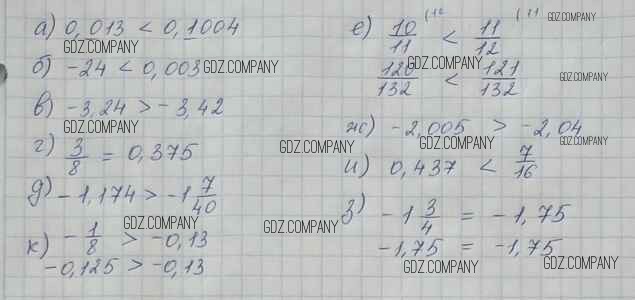 а) 0,013 < 0,1004
GDZ.COMPANY
б) -24 < 0,003 GDZ.COMPANY
в) -3,24 > -3,42
GDZ.COMPANY
г) 3/8 = 0,375
д) -1,174 > -1 7/40
GDZ.COMPANY
к) -1/8 > -0,13
-0,125 > -0,13
е) 10/11 < 11/12
GDZ.COMPANY
GDZ.COMPANY
120/132 < 121/132
GDZ.COMPANY
ж) -2,005 > -2,04
GDZ.COMPANY
GDZ.COMPANY
GDZ.COMPANY
и) 0,437 < 7/16
з) -1 3/4 = -1,75
GDZ.COMPANY
-1,75 = -1,75
GDZ.COMPANY
GDZ.COMPANY